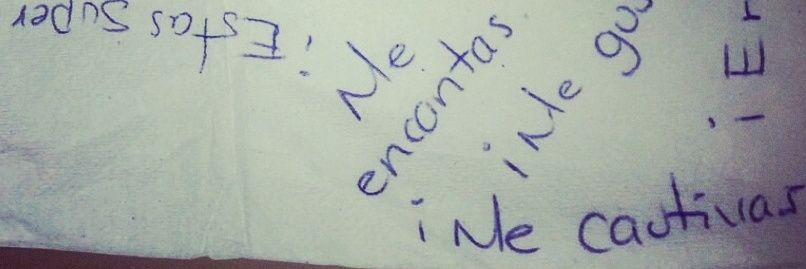 ¡Estas Super
Me
encantas
¡Me gus
¡Me cautivas
¡Er